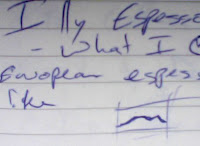 I fly Espresso
- What I
European espres
like